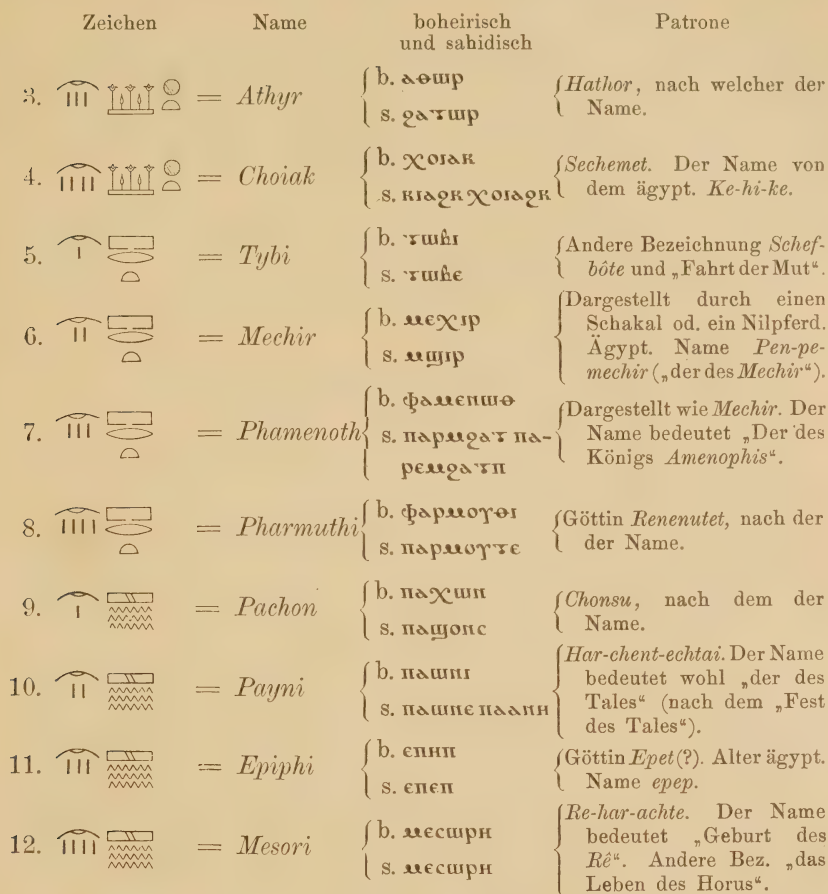 Zeichen Name boheirisch und sahidisch Patrone
3. = Athyr
b. ⲁⲑⲱⲣ
s. ϩⲁⲧⲱⲣ
Hathor, nach welcher der
Name.
4. = Choiak
b. ⲭⲟⲓⲁⲕ
s. ⲕⲓⲁϩⲕ ⲭⲟⲓⲁϩⲕ
Sechemet. Der Name von
dem ägypt. Ke-hi-ke.
5. = Tybi
b. ⲧⲱⲃⲓ
s. ⲧⲱⲃⲉ
Andere Bezeichnung Schef-
bôte und „Fahrt der Mut“.
6. = Mechir
b. ⲙⲉⲭⲓⲣ
s. ⲙϣⲓⲣ
Dargestellt durch einen
Schakal od. ein Nilpferd.
Ägypt. Name Pen-pe-
mechir („der des Mechir“).
7. = Phamenoth
b. ⲫⲁⲙⲉⲛⲱⲑ
s. ⲡⲁⲣⲙϩⲁⲧ ⲡⲁ-
ⲣⲉⲙϩⲁⲧⲡ
Dargestellt wie Mechir. Der
Name bedeutet „Der des
Königs Amenophis“.
8. = Pharmuthi
b. ⲫⲁⲣⲙⲟⲩⲑⲓ
s. ⲡⲁⲣⲙⲟⲩⲧⲉ
Göttin Renenutet, nach der
der Name.
9. = Pachon
b. ⲡⲁⲭⲱⲛ
s. ⲡⲁϣⲟⲛⲥ
Chonsu, nach dem der
Name.
10. = Payni
b. ⲡⲁⲱⲛⲓ
s. ⲡⲁⲱⲛⲉ ⲡⲁⲁⲛⲏ
Har-chent-echtai. Der Name
bedeutet wohl „der des
Tales“ (nach dem „Fest
des Tales“).
11. = Epiphi
b. ⲉⲡⲏⲡ
s. ⲉⲡⲉⲡ
Göttin Epet(?). Alter ägypt.
Name epep.
12. = Mesori
b. ⲙⲉⲥⲱⲣⲏ
s. ⲙⲉⲥⲱⲣⲏ
Re-har-achte. Der Name
bedeutet „Geburt des
Rê“. Andere Bez. „das
Leben des Horus“.